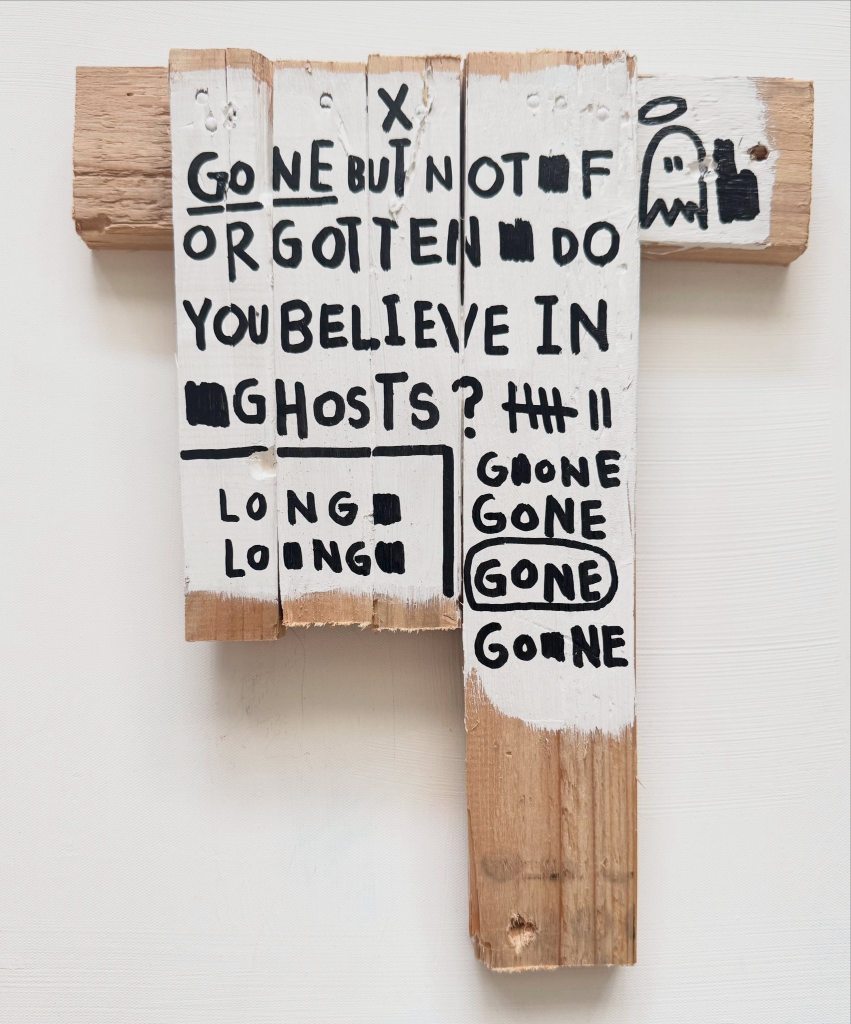 X
GONE BUT NOT F
ORGOTTEN DO
YOU BELIEVE IN
GHOSTS?
LONG
LONG
GONE
GONE
GONE
GONE